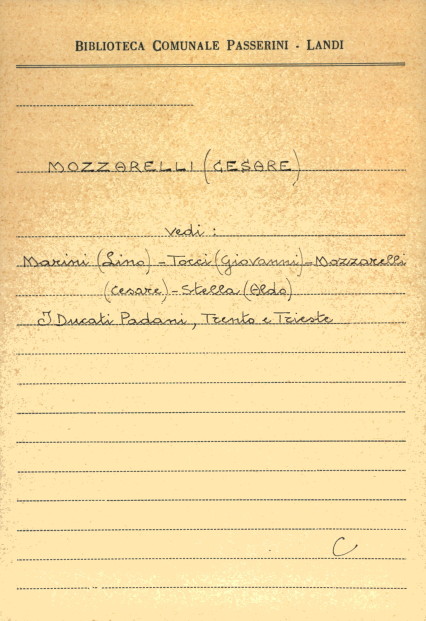 BIBLIOTECA COMUNALE PASSERINI - LANDI
MOZZARELLI (CESARE)
vedi :
Marini (Lino) - Tocci (Giovanni) - Mozzarelli
(Cesare) - Stella (Aldo)
I Ducati Padani, Trento e Trieste
C